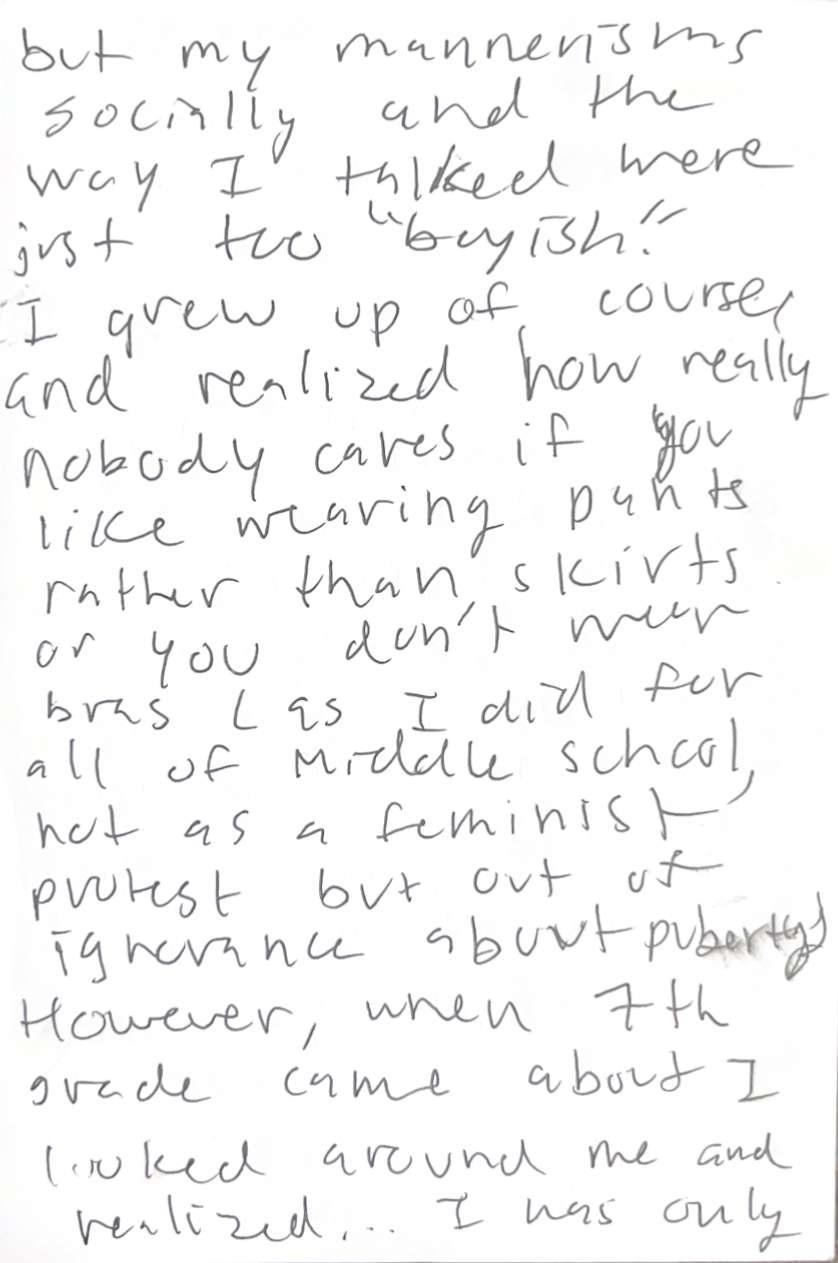 but my mannerisms
socially and the
way I talked were
just too "boyish."
I grew up of course,
and realized how really
nobody cares if you
like wearing pants
rather than skirts
or you don't wear
bras (as I did for
all of Middle school,
not as a feminist
protest but out of
ignorance about puberty)
However, when 7th
grade came about I
looked around me and
realized... I was only